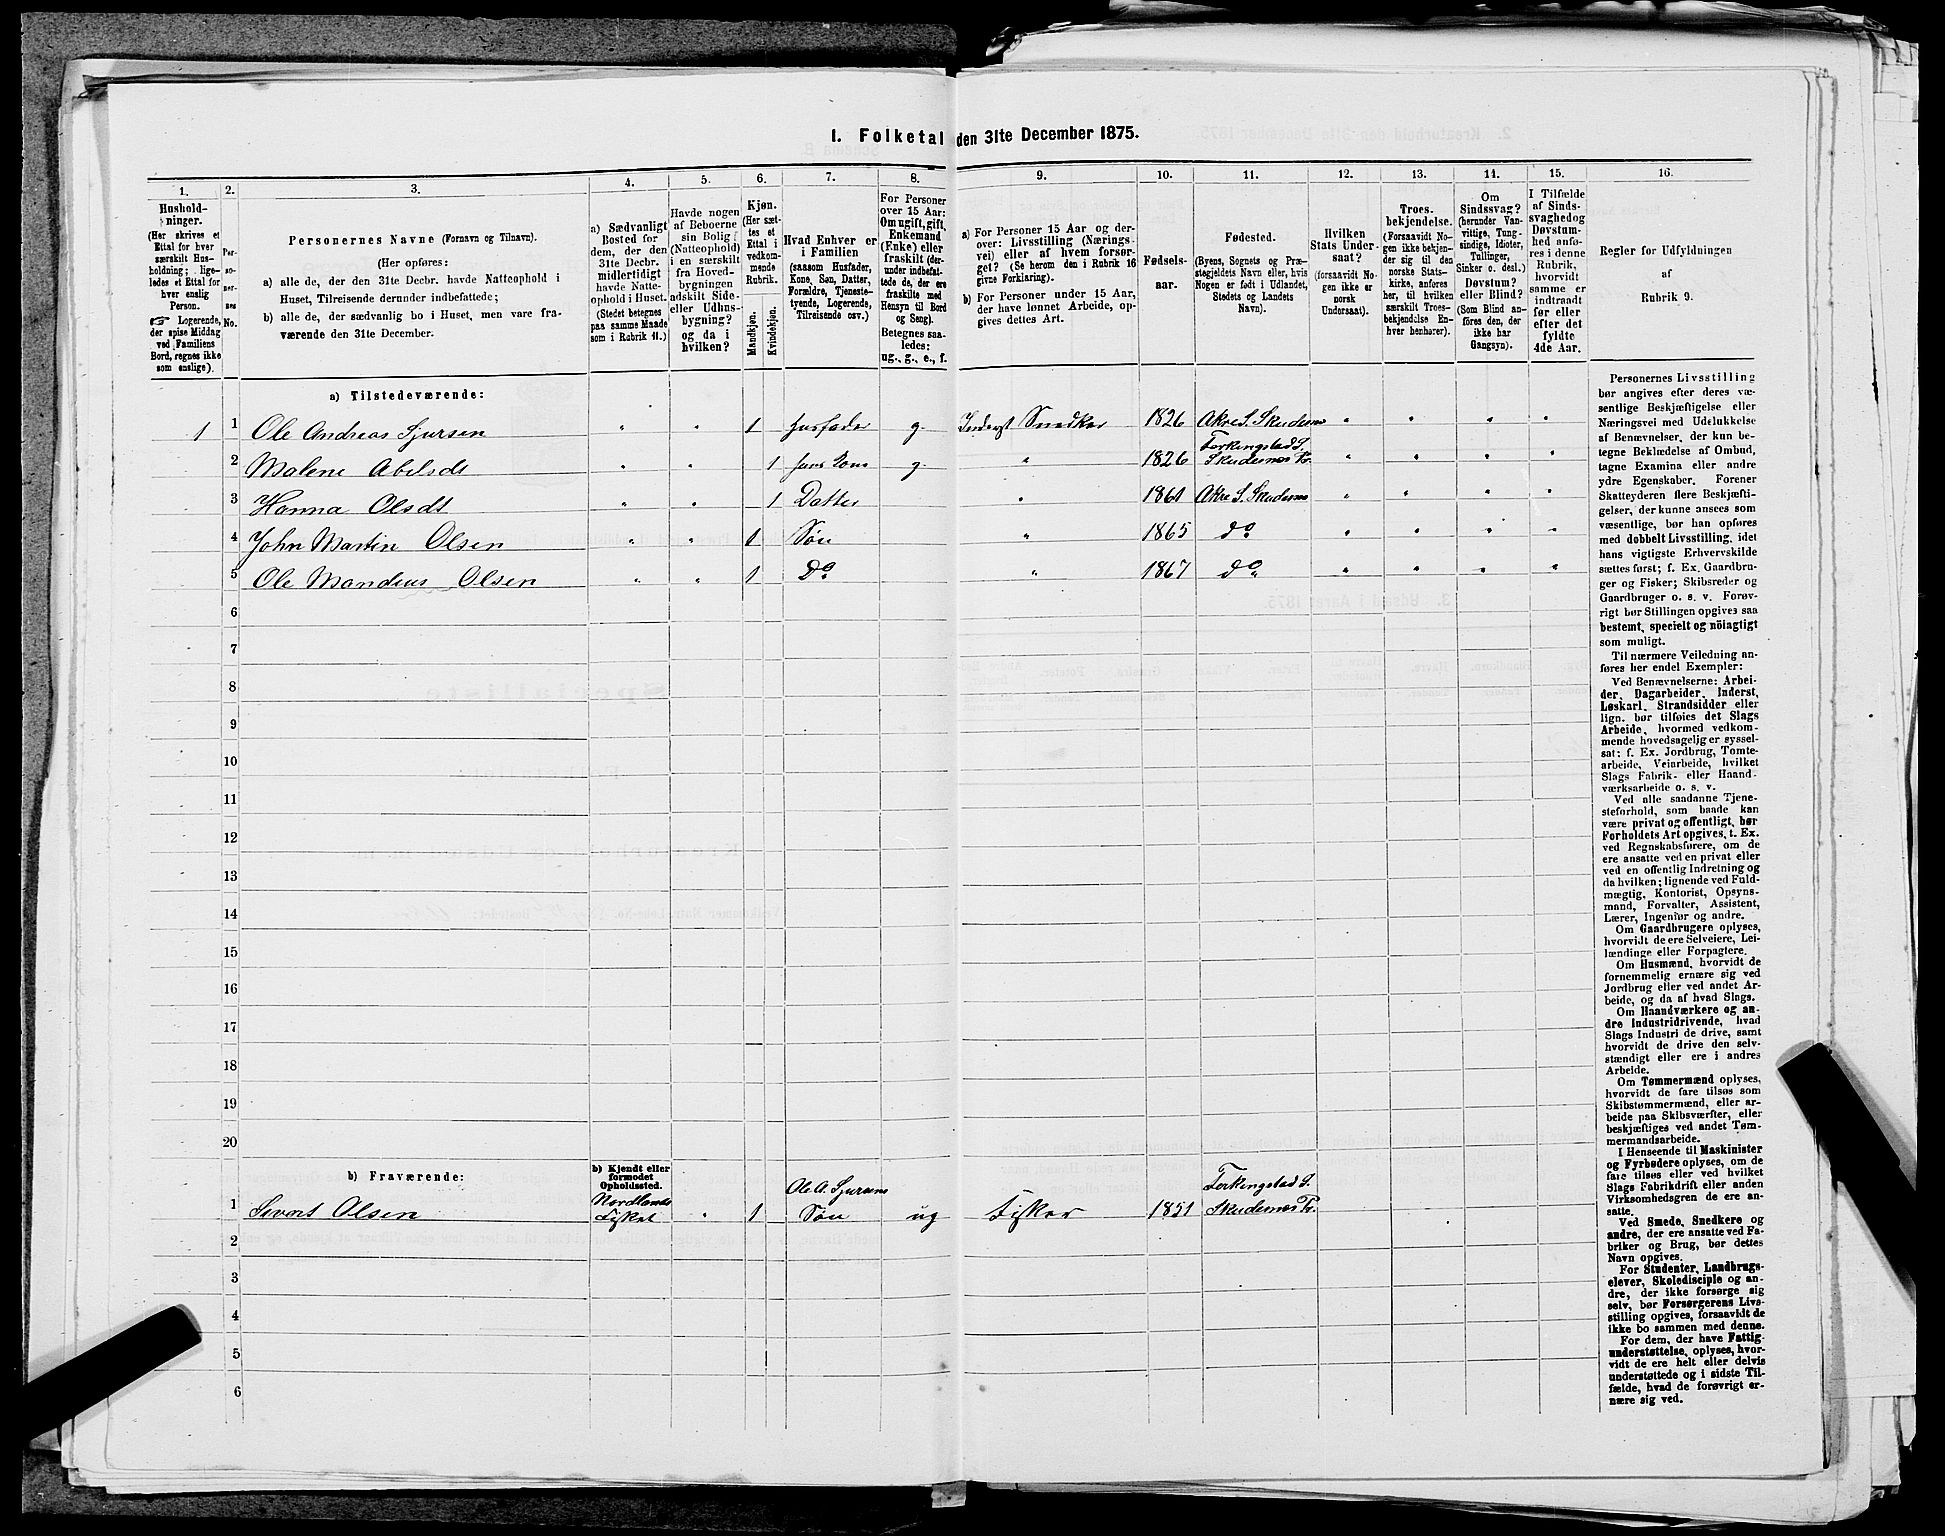 1. Folketal den 31te December 1875.
1.
2.
3.
4.
5.
6.
7.
8.
9.
10.
11.
12.
13.
14.
15.
16.
Hushold-
ninger.
(Her skrives et
Ettal for hver
særskilt Hus-
holdning; lige-
ledes et Ettal for
hver enslig
Person.
☞ Logerende,
der spise Middag
ved Familiens
Bord, regnes ikke
som enslige).
Per-
so-
ner-
nes
No.
Personernes Navne (Fornavn og Tilnavn).
(Her opføres:
a) alle de, der den 31te Decbr. havde Natteophold i
Huset, Tilreisende derunder indbefattede;
b) alle de, der sædvanlig bo i Huset, men vare fra-
værende den 31te December.
a) Sædvanligt
Bosted for
dem, der den
31te Decbr.
midlertidigt
havde Natte-
ophold i Huset.
(Stedet betegnes
paa samme Maade
som i Rubrik 11.)
Havde nogen
af Beboerne
sin Bolig
(Natteophold)
i en særskilt
fra Hoved-
bygningen
adskilt Side-
eller Udhus-
bygning?
og da i
hvilken?
Kjøn.
(Her sæt-
tes et
Ettal i
vedkom-
mende
Rubrik.
Mandkjøn.
Kvindekjøn.
Hvad Enhver er
i Familien
(saasom Husfader,
Kone, Søn, Datter,
Forældre, Tjeneste-
tyende, Logerende,
Tilreisende osv.)
For Personer
over 15 Aar:
Om ugift, gift,
Enkemand
(Enke) eller
fraskilt (der-
under indbefat-
tede de, der ere
fraskilte med
Hensyn til Bord
og Seng).
Betegnes saa-
ledes:
ug., g., e., f.
a) For Personer 15 Aar og der-
over: Livsstilling (Nærings-
vei) eller af hvem forsør-
get? (Se herom den i Rubrik 16
givne Forklaring).
b) For Personer under 15 Aar,
der have lønnet Arbeide, op-
gives dettes Art.
Fødsels-
aar.
Fødested.
(Byens, Sognets og Præ-
stegjeldets Navn eller, hvis
Nogen er født i Udlandet,
Stedets og Landets
Navn).
Hvilken
Stats Under-
saat?
(forsaavidt No-
gen ikke er
norsk
Undersaat).
Troes-
bekjendelse.
(Forsaavidt No-
gen ikke bekjen-
der sig til den
norske Stats-
kirke, anføres
her, til hvilken
særskilt Troes-
bekjendelse En-
hver henhører).
Om
Sindssvag?
(herunder Van-
vittige, Tung-
sindige, Idioter,
Tullinger,
Sinker o. desl.)
Døvstum?
eller Blind?
(Som Blind an-
føres den, der
ikke har
Gangsyn).
I Tilfælde
af Sinds-
svaghed og
Døvstum-
hed anfø-
res i denne
Rubrik,
hvorvidt
samme er
indtraadt
før eller
efter det
fyldte
4de Aar.
Regler for Udfyldningen
af
Rubrik 9.
a) Tilstedeværende:
1 1 Ole Andreas Sjursen " " 1 husfader g. Inderst Snedker 1826 Akre S. Skudenæs " " " "
2 Malene Abelsdt " " 1 hans Kone g. " 1826 Forkingstad S. Skudesnes Pr. " " " "
3 Hanna Olsdt " " 1 Datter " 1861 Akre S. Skudenes " " " "
4 John Martin Olsen " " 1 Søn " 1865 do " " " "
5 Ole Mandius Olsen " " 1 Do " 1867 do " " " "
6
7
8
9
10
11
12
13
14
15
16
17
18
19
20
b) Fraværende:
b) Kjendt eller
formodet
Opholdssted.
1 Sivert Olsen Nordlands Fisket " 1 Ole A. Sjursens Søn ug Fisker 1851 Forkingstad S. Skudesnes Pr.
2
3
4
5
6
Personernes Livsstilling
bør angives efter deres væ-
sentlige Beskjæftigelse eller
Næringsvei med Udelukkelse
af Benævnelser, der kun be-
tegne Beklædelse af Ombud,
tagne Examina eller andre
ydre Egenskaber. Forener
Skatteyderen flere Beskjæfti-
gelser, der kunne ansees som
væsentlige, bør han opføres
med dobbelt Livsstilling, idet
hans vigtigste Erhvervskilde
sættes først; f. Ex. Gaardbru-
ger og Fisker; Skibsreder og
Gaardbruger o. s. v. Forøv-
rigt bør Stillingen opgives saa
bestemt, specielt og nöiagtigt
som muligt.
Til nærmere Veiledning an-
føres her endel Exempler:
Ved Benævnelserne: Arbei-
der, Dagarbeider, Inderst,
Løskarl, Strandsidder eller
lign. bør tilføies det Slags
Arbeide, hvormed vedkom-
mende hovedsagelig er syssel-
sat: f. Ex. Jordbrug, Tomte-
arbeide, Veiarbeide, hvilket
Slags Fabrik- eller Haand-
værksarbeide o. s. v.
Ved alle saadanne Tjene-
steforhold, som baade kan
være privat og offentligt, bør
Forholdets Art opgives, t. Ex.
ved Regnskabsførere, om de
ere ansatte ved en privat eller
ved en offentlig Indretning og
da hvilken; lignende ved Fuld-
mægtig, Kontorist, Opsyns-
mand, Forvalter, Assistent,
Lærer, Ingeniør og andre.
Om Gaardbrugere oplyses,
hvorvidt de ere Selveiere, Lei-
lændinge eller Forpagtere.
Om Husmænd, hvorvidt de
fornemmelig ernære sig ved
Jordbrug eller ved andet Ar-
beide, og da af hvad Slags.
Om Haandværkere og an-
dre Industridrivende, hvad
Slags Industri de drive, samt
hvorvidt de drive den selv-
stændigt eller ere i andres
Arbeide.
Om Tømmermænd oplyses,
hvorvidt de fare tilsøs som
Skibstømmermænd, eller ar-
beide paa Skibsværfter, eller
beskjæftiges ved andet Tøm-
mermandsarbeide.
I Henseende til Maskinister
og Fyrbødere oplyses, om de
fare tilsøs eller ved hvilket
Slags Fabrikdrift eller anden
Virksomhedsgren de ere an-
satte.
Ved Smede, Snedkere og
andre, der ere ansatte ved Fa-
briker og Brug, bør dettes
Navn opgives.
For Studenter, Landbrugs-
elever, Skoledisciple og an-
dre, der ikke forsørge sig
selv, bør Forsørgerens Livs-
stilling opgives, forsaavidt de
ikke bo sammen med denne.
For dem, der have Fattig-
understøttelse, oplyses, hvor-
vidt de ere helt eller delvis
understøttede og i sidste Til-
fælde, hvad de forøvrigt er-
nære sig ved.